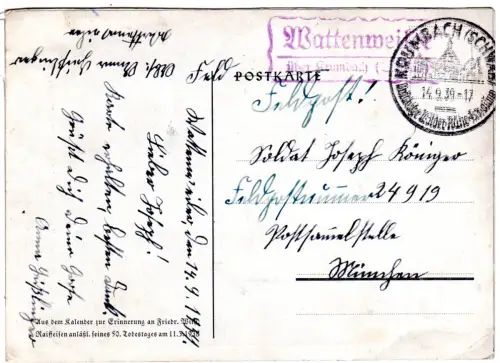 Wattenweiler
über Krumbach (
KRUMBACH (SCHWAB)
14.9.39-17
Feld POSTKARTE
Feldpost!
Soldat Joseph Königer
Feldpostnummer 24919
Postsammelstelle
München
Abs. Anna
Wattenweiler
Wattenweiler den 14.9.
Lieber Joseph!
Karte erhalten, besten Dank.
Grüßt Dich Deine
Anna
Aus dem Kalender zur Erinnerung an Friedr. Wilh.
Raiffeisen anläßl. seines 50. Todestages am 11.3.1938